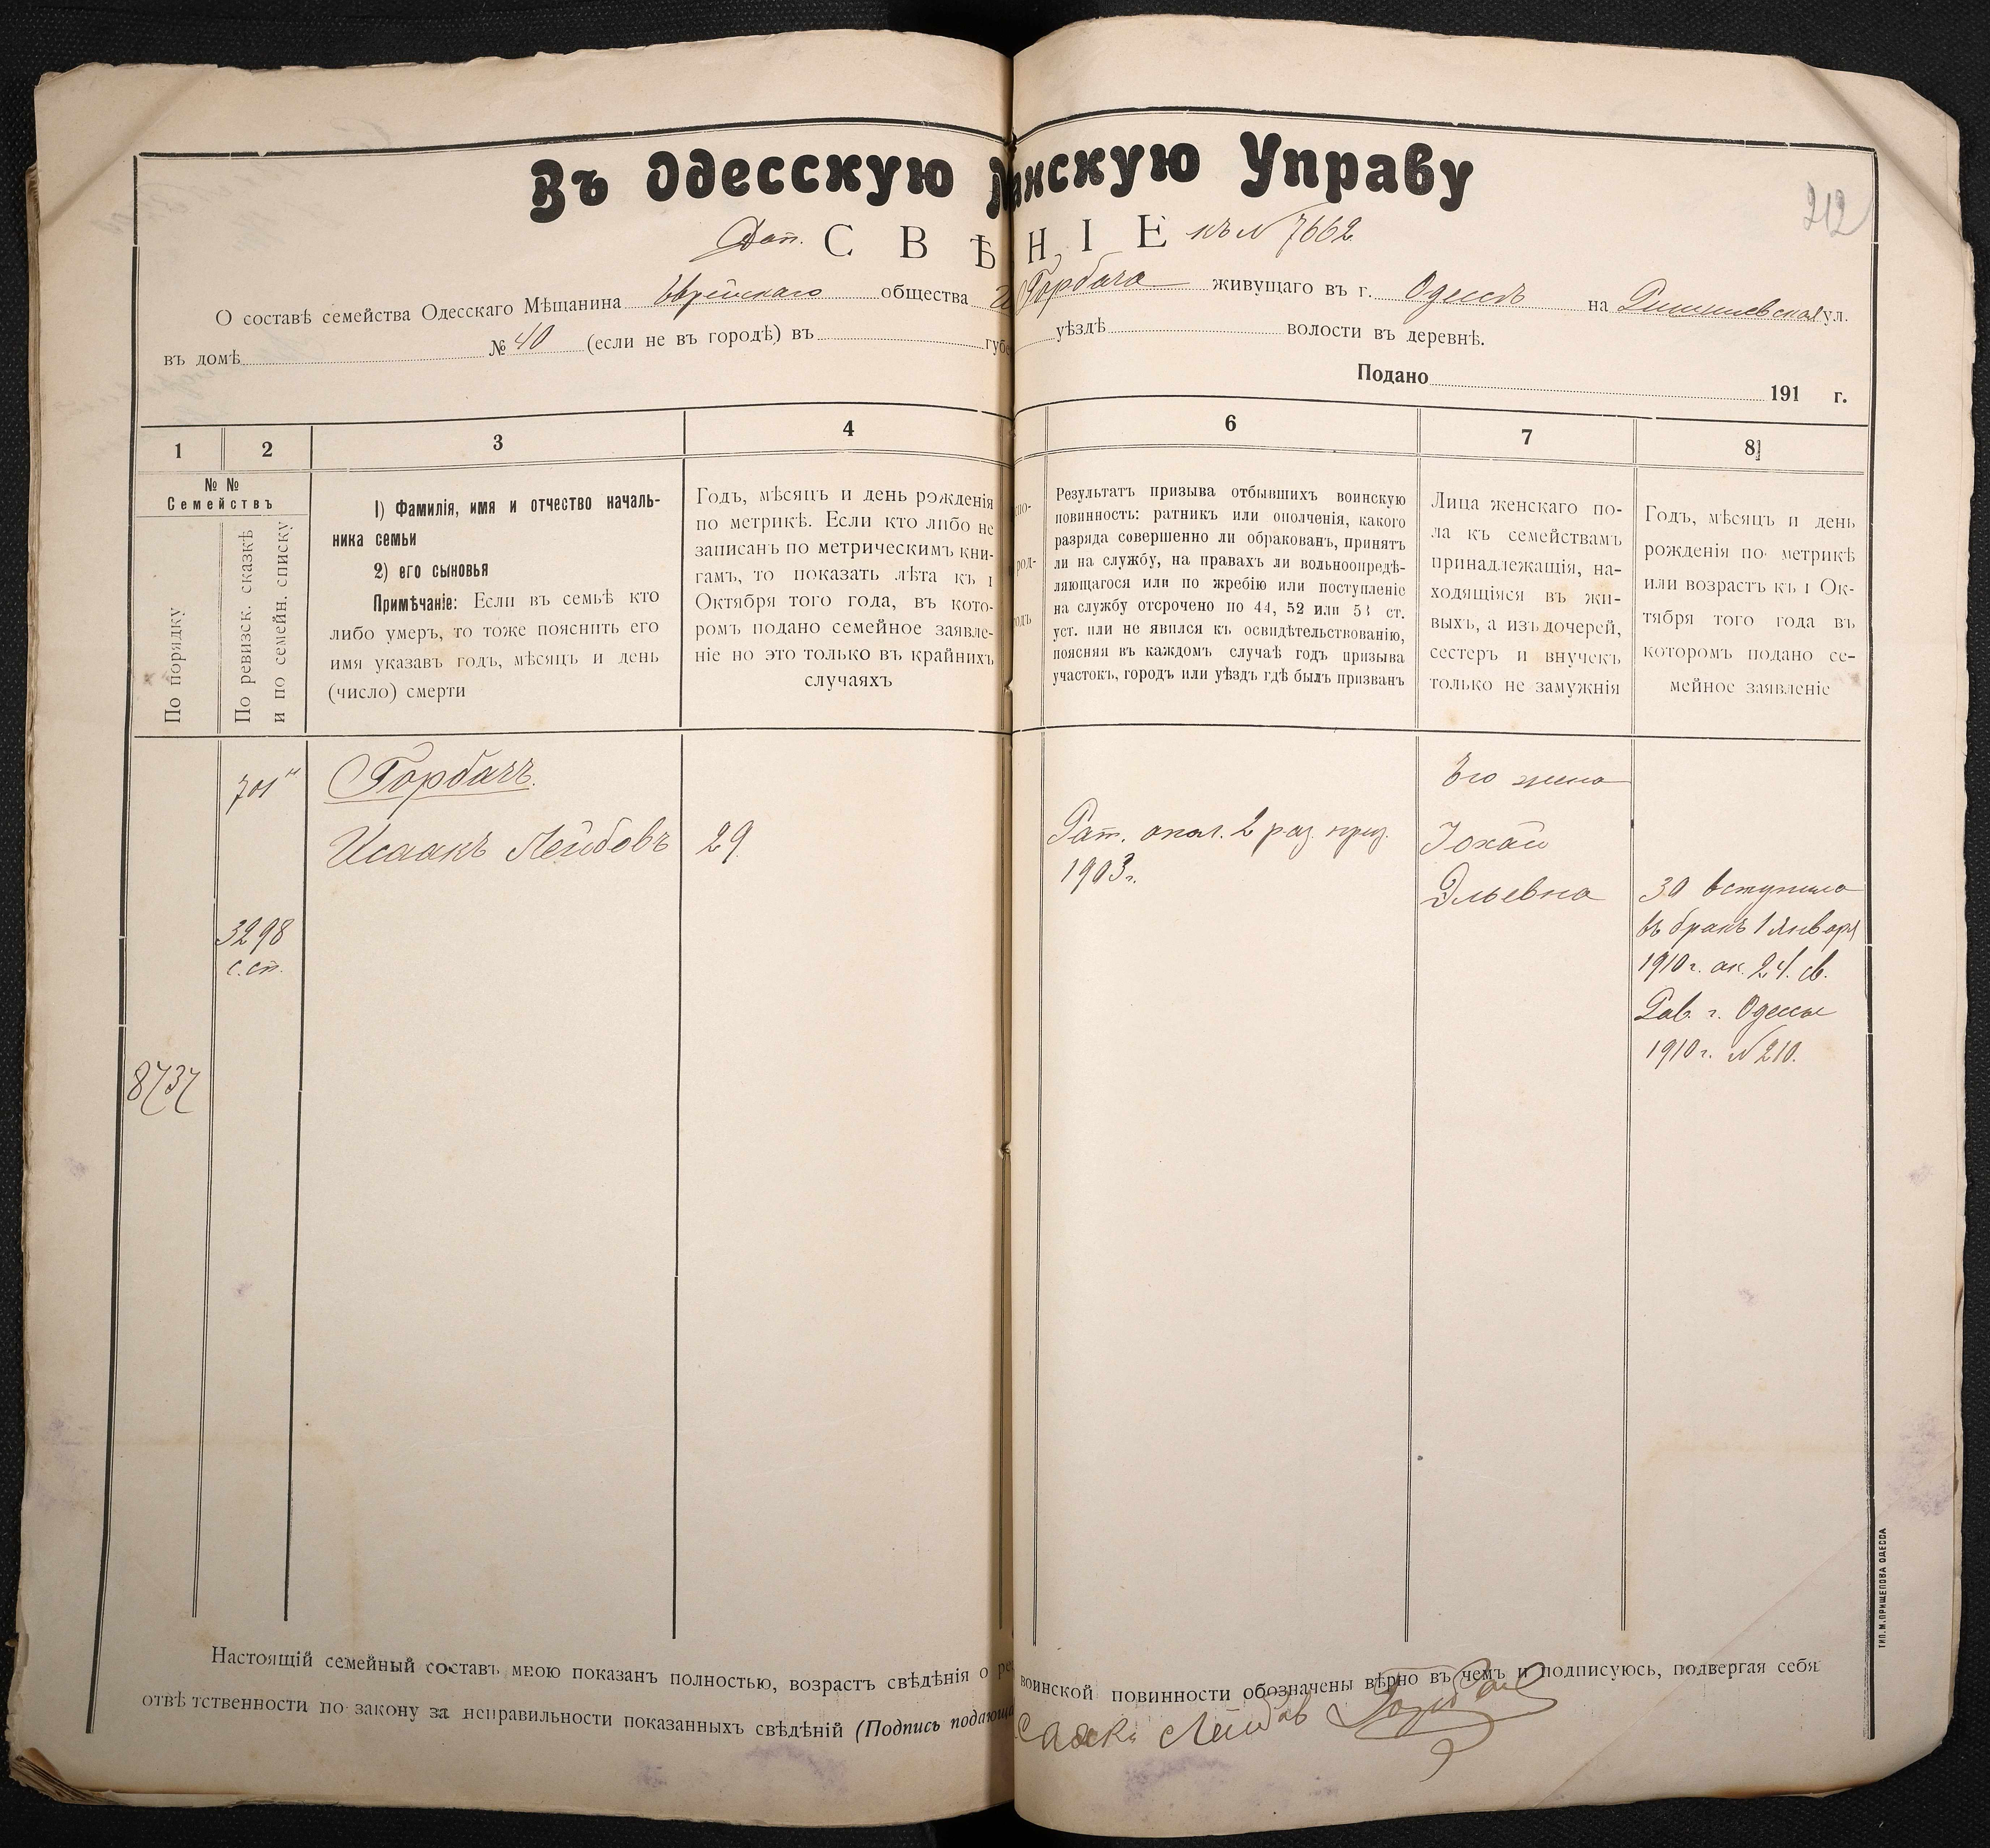 Въ Одесскую нскую Управу
212
Доп. С В Ѣ Н І Е къ № 7662
О составѣ семейства Одесскаго Мѣщанина Еврейскаго общества Горбача живущаго въ г. Одессѣ на Ришельевской ул.
въ домѣ № 40 (если не въ городѣ) въ губе уѣздѣ волости въ деревнѣ.
Подано 191 г.
1 2 3 4 6 7 8
№ №
Семействъ
По порядку
По ревизск. сказкѣ
и по семейн. списку
1) Фамилія, имя и отчество началь-
ника семьи
2) его сыновья
Примѣчаніе: Если въ семьѣ кто
либо умеръ, то тоже пояснить его
имя указавъ годъ, мѣсяцъ и день
(число) смерти
Годъ, мѣсяцъ и день рожденія
по метрикѣ. Если кто либо не
записанъ по метрическимъ кни-
гамъ, то показать лѣта къ 1
Октября того года, въ кото-
ромъ подано семейное заявле-
ніе но это только въ крайнихъ
случаяхъ
Результатъ призыва отбывшихъ воинскую
повинность: ратникъ или ополченія, какого
разряда совершенно ли обракованъ, принятъ
ли на службу, на правахъ ли вольноопредѣ-
ляющагося или по жребію или поступленіе
на службу отсрочено по 44, 52 или 53 ст.
уст. или не явился къ освидѣтельствованію,
поясняя въ каждомъ случаѣ годъ призыва
участокъ, городъ или уѣздъ гдѣ былъ призванъ
Лица женскаго по-
ла къ семействамъ
принадлежащія, на-
ходящіяся въ жи-
выхъ, а изъ дочерей,
сестеръ и внучекъ
только не замужнія
Годъ, мѣсяцъ и день
рожденія по метрикѣ
или возрастъ къ 1 Ок-
тября того года въ
которомъ подано се-
мейное заявленіе
701 Горбачъ.
Исаакъ Лейбовъ 29
3298
с. сп.
8737
Рат. опол. 2 раз. приз.
1903 г.
Его жена
Іохай
Эльевна
30 вступила
въ бракъ 1 Января
1910 г. ак. 24. св.
Рав. г. Одессы
1910 г. № 210.
Настоящій семейный составъ мною показанъ полностью, возрастъ свѣдѣнія о ре воинской повинности обозначены вѣрно въ чемъ и подписуюсь, подвергая себя
отвѣтственности по закону за неправильности показанныхъ свѣдѣній (Подпись подающа Лейбов Горбач
ТИП. М. ПРИЩЕПОВА ОДЕССА